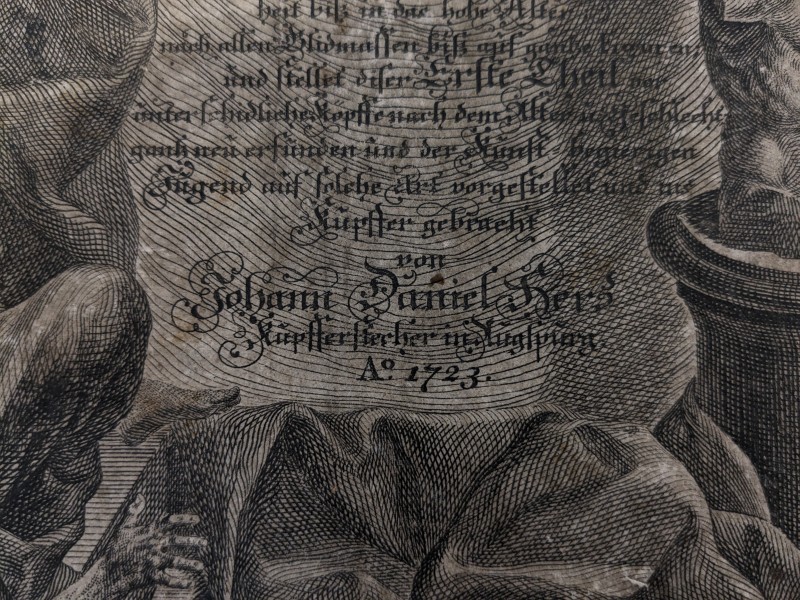 heit biß in das hohe Alter
nach allen Glidmassen biß auf gantze Figuren,
und stellet diser Erste Theil vor
unterschidliche Köpffe nach dem Alter u. Geschlecht
gantz neu erfunden und der Kunst begierigen
Jugend auf solche Art vorgestellet und ins
Kupffer gebracht
von
Johann Daniel Hers
Kupfferstecher in Augspurg.
Aº. 1723.